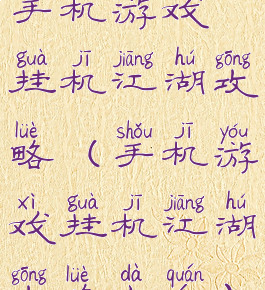 手机游戏
guà jī jiāng hú gōng
挂机江湖攻
lüè shǒu jī yóu
略（手机游
xì guà jī jiāng hú
戏挂机江湖
gōng lüè dà quán